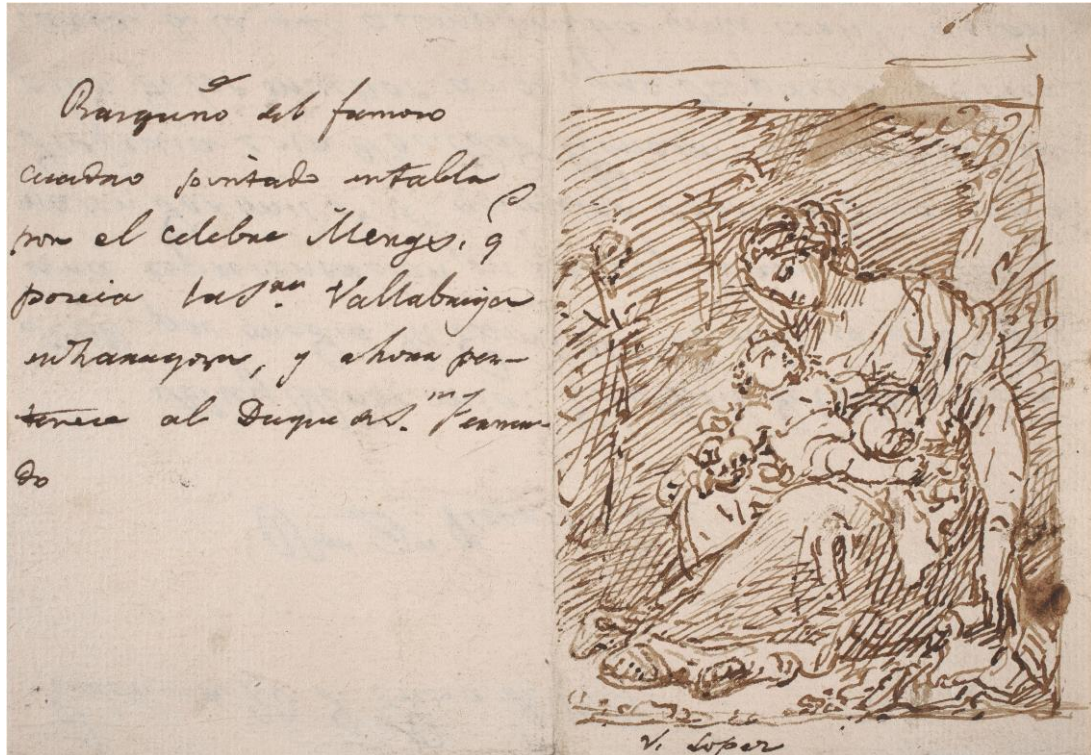 Rasguño del famoso
cuadro pintado entabla
por el celebre Mengs, q
poseia la Sra. Vallabriga
enZaragoza, y ahora per-
tenece al Duque de S.n Fernan
do
V. Lopez